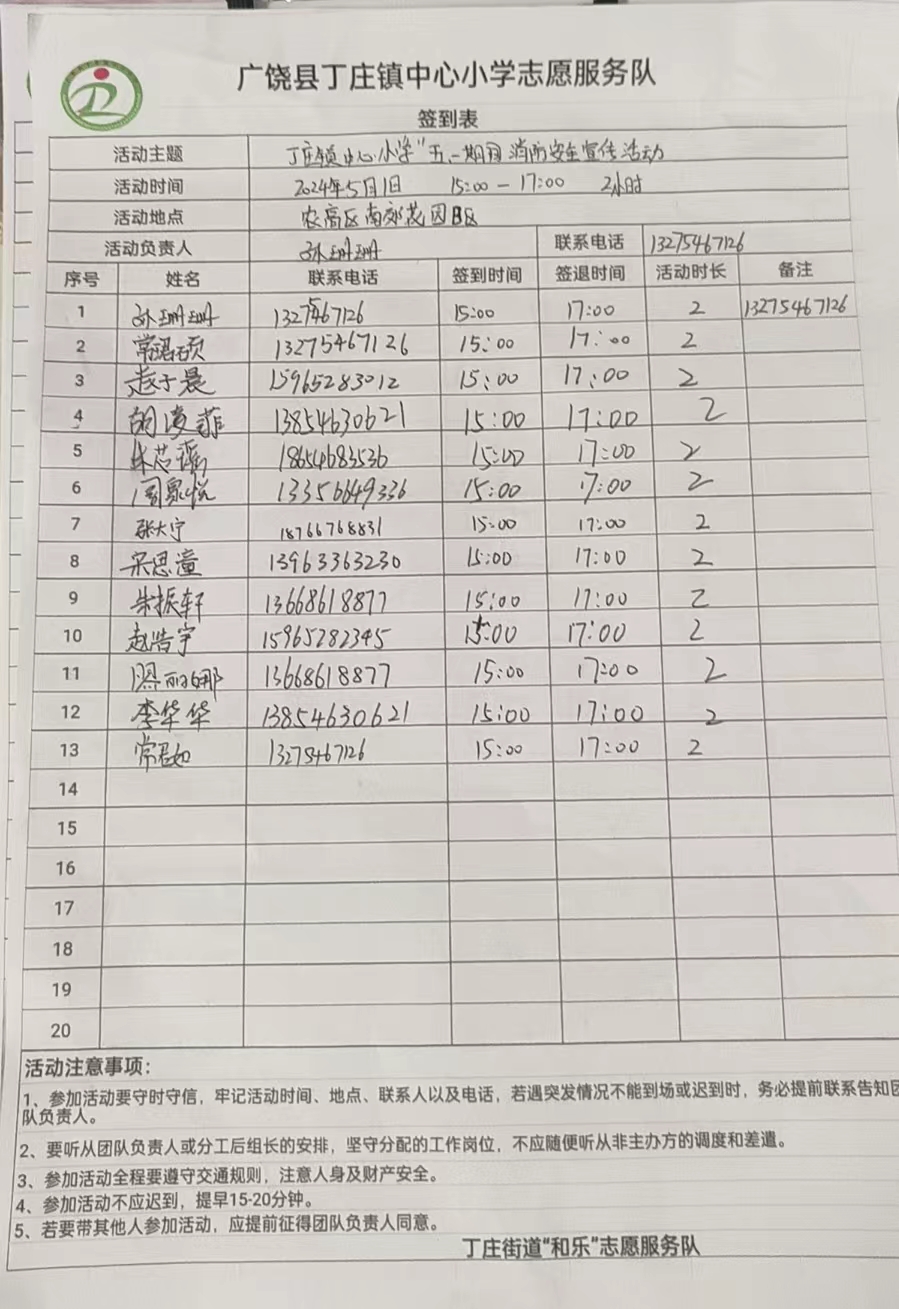 广饶县丁庄镇中心小学志愿服务队
签到表
活动主题 丁庄镇中心小学"五一期间消防安全宣传活动
活动时间 2024年5月1日 15:00-17:00 2小时
活动地点 农高区南郊花园B区
活动负责人 孙珊珊 联系电话 13275467126
序号 姓名 联系电话 签到时间 签退时间 活动时长 备注
1 孙珊珊 13275467126 15:00 17:00 2 13275467126
2 常珺硕 13275467126 15:00 17:00 2
3 赵子晨 15965283012 15:00 17:00 2
4 胡凌菲 13854630621 15:00 17:00 2
5 朱芯 18654683536 15:00 17:00 2
6 周家悦 13356649336 15:00 17:00 2
7 张大宁 18766768831 15:00 17:00 2
8 宋思潼 13963363230 15:00 17:00 2
9 朱振轩 13668618877 15:00 17:00 2
10 赵浩宇 15965282345 15:00 17:00 2
11 丽娜 13668618877 15:00 17:00 2
12 李华华 13854630621 15:00 17:00 2
13 常君如 13275467126 15:00 17:00 2
14
15
16
17
18
19
20
活动注意事项：
1、参加活动要守时守信，牢记活动时间、地点、联系人以及电话，若遇突发情况不能到场或迟到时，务必提前联系告知团
队负责人。
2、要听从团队负责人或分工后组长的安排，坚守分配的工作岗位，不应随便听从非主办方的调度和差遣。
3、参加活动全程要遵守交通规则，注意人身及财产安全。
4、参加活动不应迟到，提早15-20分钟。
5、若要带其他人参加活动，应提前征得团队负责人同意。
丁庄街道"和乐"志愿服务队